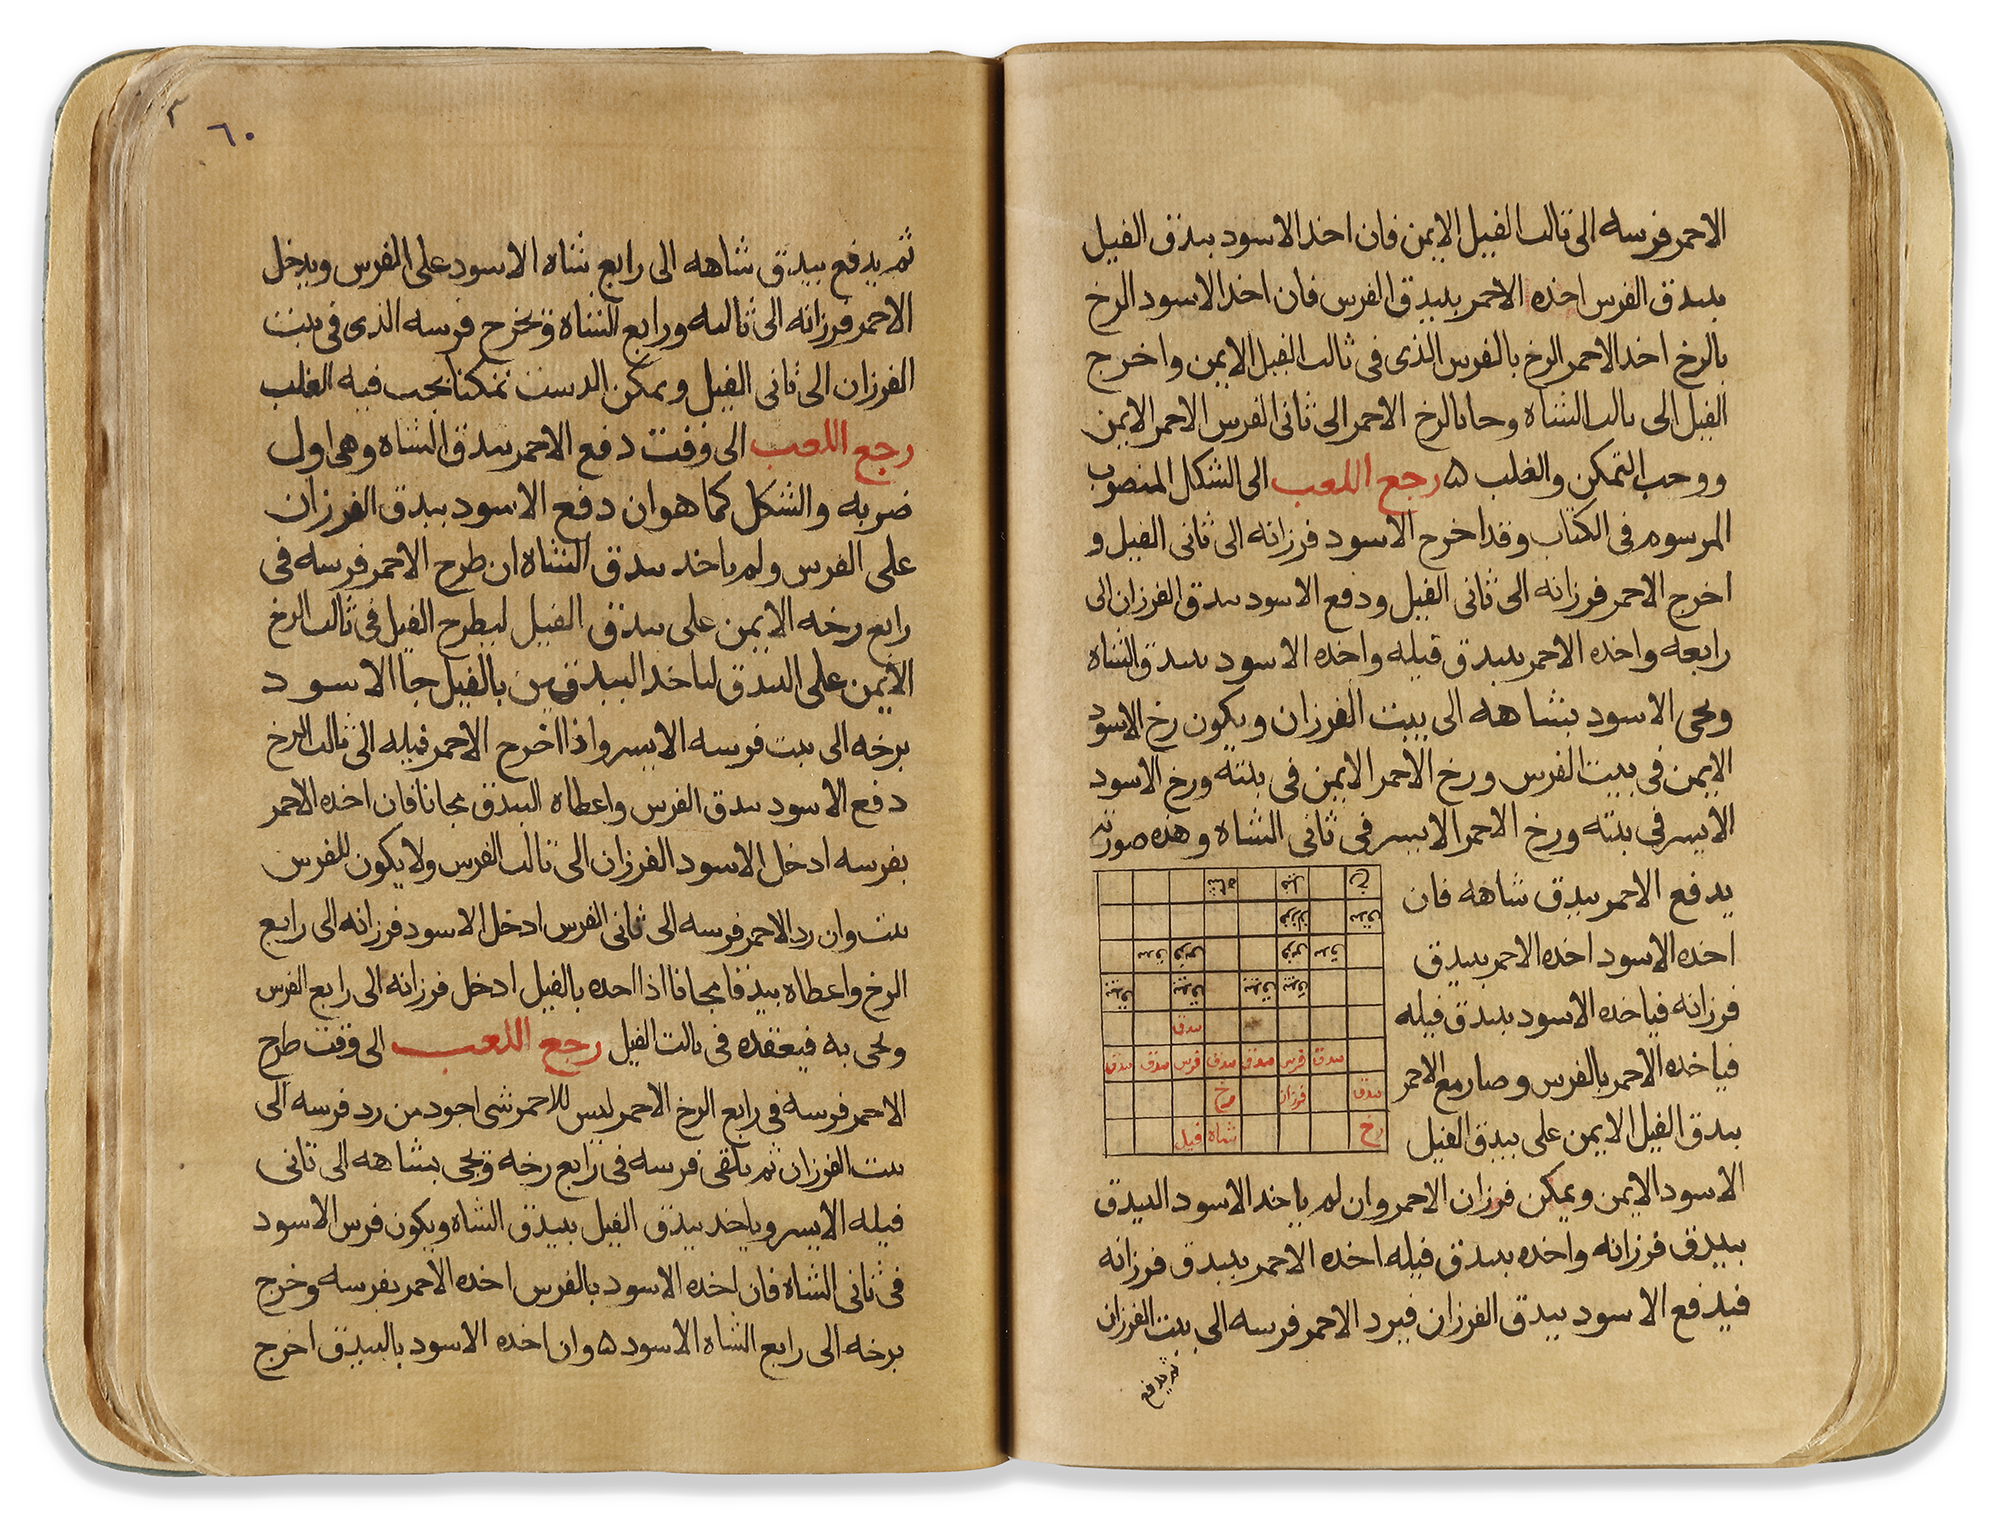 الاحمر فرسه الى ثالث الفيل الايمن فان اخذ الاسود بيذق الفيل
بيذق الفرس اخذه الاحمر ببيذق الفرس فان اخذ الاسود الرخ
بالرخ اخذ الاحمر الرخ بالفرس الذى فى ثالث الفيل الايمن واخرج
الفيل الى ثالث الشاه وجا بالرخ الاحمر الى ثانى الفرس الاحمر الايمن
ووجب التمكن والغلب ۵ رجع اللعب الى الشكل المنصوب
المرسوم فى الكتاب وقد اخرج الاسود فرزانه الى ثانى الفيل و
اخرج الاحمر فرزانه الى ثانى الفيل ودفع الاسود بيدق الفرزان الى
رابعه واخذه الاحمر ببيدق فيله واخذه الاسود ببيدق الشاه
ويجى الاسود بشاهه الى بيت الفرزان ويكون رخ الاسود
الايمن فى بيت الفرس ورخ الاحمر الايمن فى بيته ورخ الاسود
الايسر فى بيته ورخ الاحمر الايسر فى ثانى الشاه وهذه صورته
يدفع الاحمر بيدق شاهه فان
اخذه الاسود اخذه الاحمر ببيدق
فرزانه فياخذه الاسود ببيدق فيله
فياخذه الاحمر بالفرس وصار مع الاحمر
بيدق الفيل الايمن على بيدق الفيل
رخ فيل شاه
بيدق فرزان
بيدق فرس فرس بيدق
بيدق بيدق بيدق بيدق
بيدق
بيدق فرس بيدق بيدق فرس بيدق بيدق
بيدق فرزان رخ
رخ شاه فيل
الاسود الايمن ويمكن فرزان الاحمر وان لم ياخذ الاسود البيدق
ببيدق فرزانه واخذه ببيدق فيله اخذه الاحمر ببيدق فرزانه
فيدفع الاسود بيدق الفرزان فيرد الاحمر فرسه الى بيت الفرزان
ثم يدفع
٦٠
ثم يدفع بيدق شاهه الى رابع شاه الاسود على الفرس ويدخل
الاحمر فرزانه الى ثالثه ورابع الشاه ويخرج فرسه الذى فى بيت
الفرزان الى ثانى الفيل ويمكن الدست تمكنا يجب فيه الغلب
رجع اللعب الى وقت دفع الاحمر بيدق الشاه وهى اول
ضربه والشكل كما هو ان دفع الاسود بيدق الفرزان
على الفرس ولم ياخذ بيدق الشاه ان طرح الاحمر فرسه فى
رابع رخه الايمن على بيدق الفيل ليطرح الفيل فى ثالث الرخ
الايمن على البيدق لياخذ البيدقين بالفيل جا الاسود
برخه الى بيت فرسه الايسر واذا اخرج الاحمر فيله الى ثالث الرخ
دفع الاسود بيدق الفرس واعطاه البيدق مجانا فان اخذه الاحمر
بفرسه ادخل الاسود الفرزان الى ثالث الفرس ولا يكون للفرس
بيت وان رد الاحمر فرسه الى ثانى الفرس ادخل الاسود فرزانه الى رابع
الرخ واعطاه بيدقا مجانا اذا اخذه بالفيل ادخل فرزانه الى رابع الفرس
ويجى به فيعقده فى ثالث الفيل رجع اللعب الى وقت طرح
الاحمر فرسه فى رابع الرخ الاحمر ليس للاحمر شى اجود من رد فرسه الى
بيت الفرزان ثم يلقى فرسه فى رابع رخه ويجى بشاهه الى ثانى
فيله الايسر وياخذ بيدق الفيل ببيدق الشاه ويكون فرس الاسود
فى ثانى الشاه فان اخذه الاسود بالفرس اخذه الاحمر بفرسه وخرج
برخه الى رابع الشاه الاسود ۵ وان اخذه الاسود بالبيدق اخرج